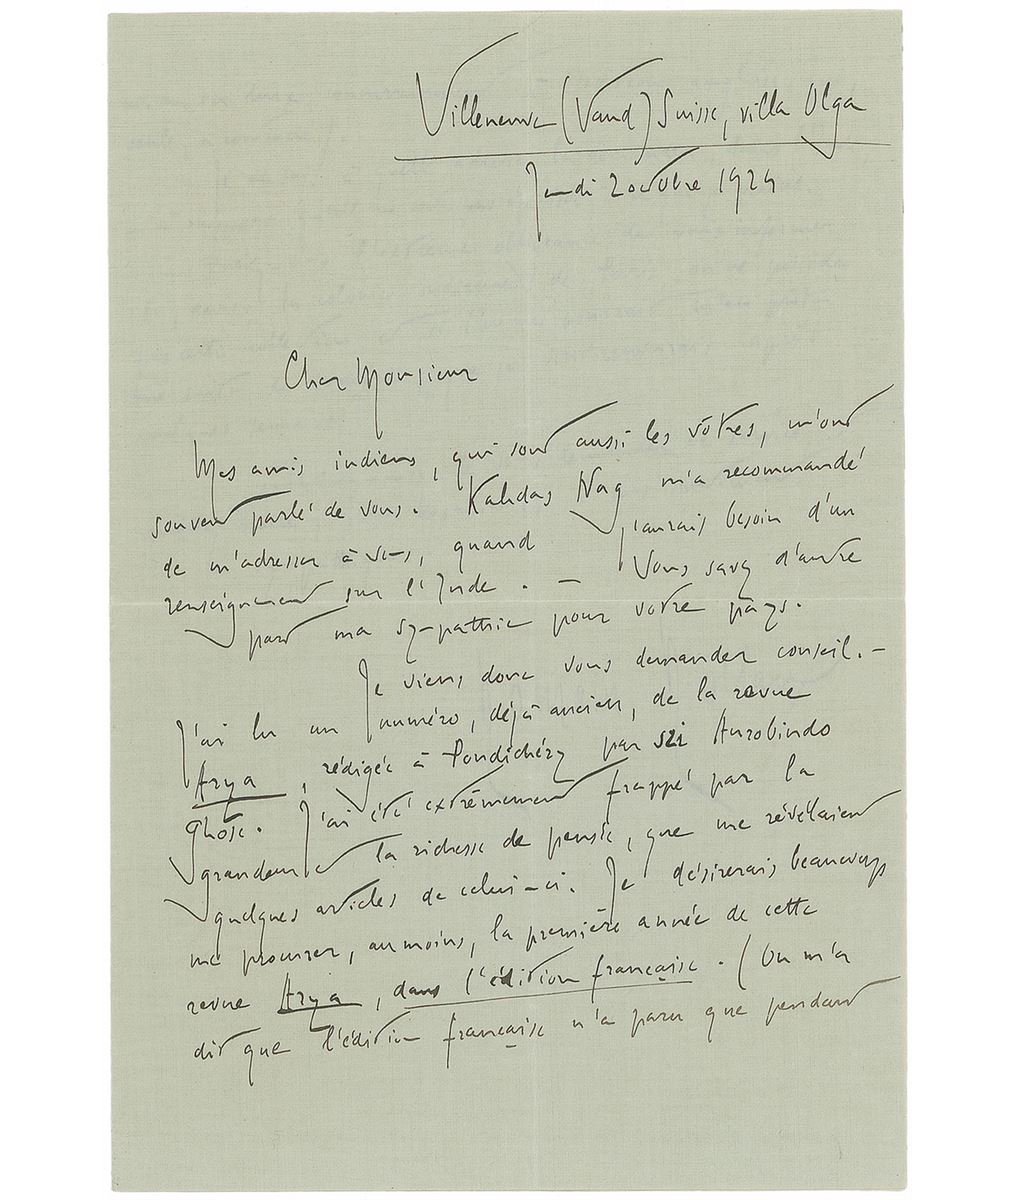 Villeneuve (Vaud) Suisse, villa Olga
Jeudi 2 octobre 1924
Cher Monsieur
Mes amis indiens, qui sont aussi les vôtres, m'ont
souvent parlé de vous. Kalidas Nag m'a recommandé
de m'adresser à vous, quand j'aurais besoin d'un
renseignement sur l'Inde. — Vous savez d'autre
part ma sympathie pour votre pays.
Je viens donc vous demander conseil. —
J'ai lu un numéro, déjà ancien, de la revue
Arya, rédigée à Pondichéry par Sri Aurobindo
Ghose. J'ai été extrêmement frappé par la
grandeur et la richesse de pensée, que me révélaient
quelques articles de celui-ci. Je désirerais beaucoup
me procurer, au moins, la première année de cette
revue Arya, dans l'édition française. (On m'a
dit que l'édition française n'a paru que pendant